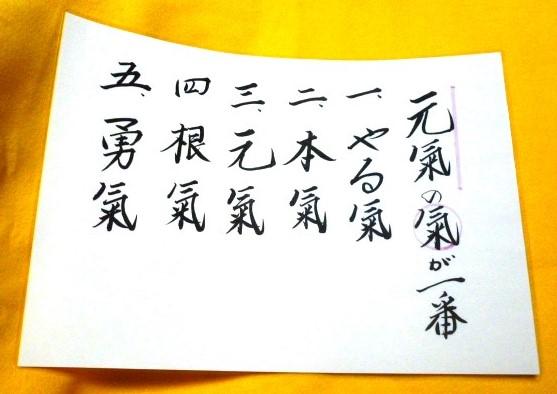 元氣の氣が一番
一、やる氣
二、本氣
三、元氣
四根氣
五、勇氣